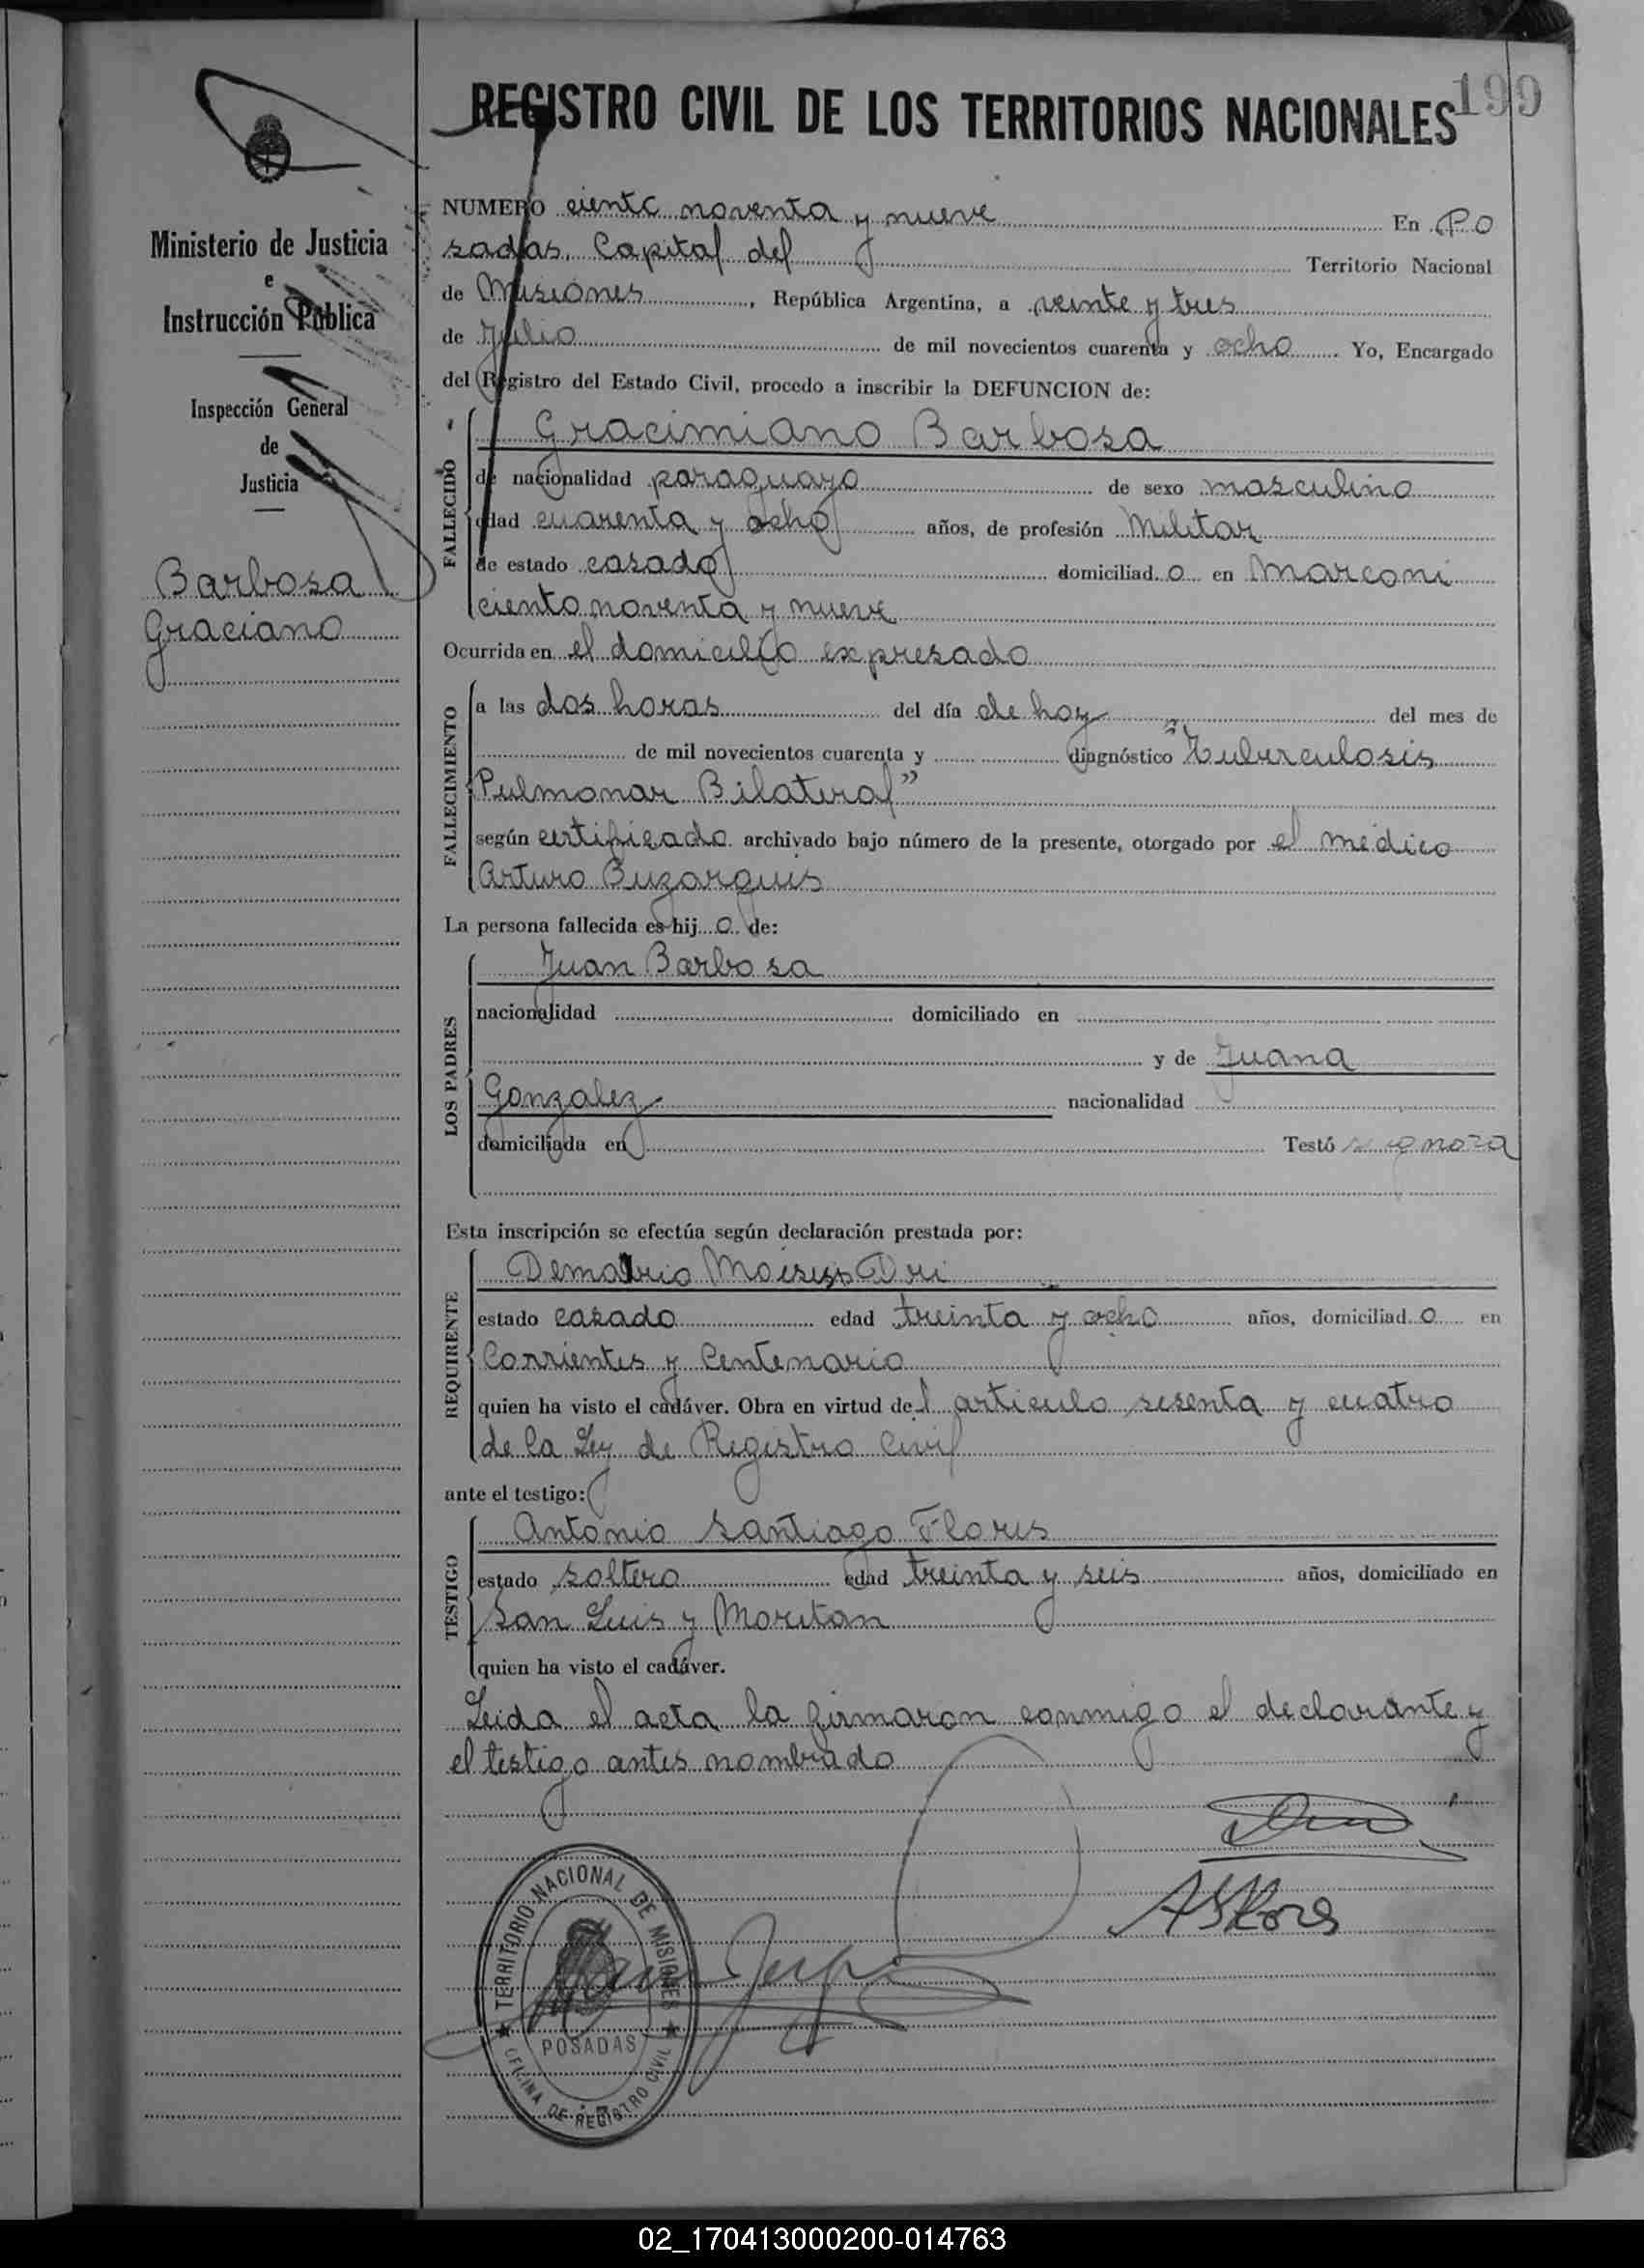 199
REGISTRO CIVIL DE LOS TERRITORIOS NACIONALES
Ministerio de Justicia
e
Instrucción Pública
Inspección General
de
Justicia
Barbosa
Graciano
NUMERO ciento noventa y nueve En Po
sadas, Capital del Territorio Nacional
de Misiones, República Argentina, a veinte y tres
de Julio de mil novecientos cuarenta y ocho. Yo, Encargado
del Registro del Estado Civil, procedo a inscribir la DEFUNCION de:
FALLECIDO
Gracimiano Barbosa
de nacionalidad paraguayo de sexo masculino
edad cuarenta y ocho años, de profesión Militar
de estado casado domiciliad o en Marconi
ciento noventa y nueve
Ocurrida en el domicilio expresado
FALLECIMIENTO
a las dos horas del día de hoy del mes de
de mil novecientos cuarenta y diagnóstico "Tuberculosis
Pulmonar Bilateral"
según certificado archivado bajo número de la presente, otorgado por el médico
Arturo Buzarquis
La persona fallecida es hij o de:
LOS PADRES
Juan Barbosa
nacionalidad domiciliado en
y de Juana
Gonzalez nacionalidad
domiciliada en Testó se ignora
Esta inscripción se efectúa según declaración prestada por:
REQUIRENTE
Moises Dri
estado casado edad treinta y ocho años, domiciliad o en
Corrientes y Centenario
quien ha visto el cadáver. Obra en virtud del artículo sesenta y cuatro
de la Ley de Registro Civil
ante el testigo:
TESTIGO
Antonio Santiago Flores
estado soltero edad treinta y seis años, domiciliado en
San Luis y Moritan
quien ha visto el cadáver.
Leida el acta la firmaron conmigo el declarante y
el testigo antes nombrado
Dri
ASFlores
TERRITORIO NACIONAL DE MISIONES
POSADAS
OFICINA DE REGISTRO CIVIL
02_170413000200-014763